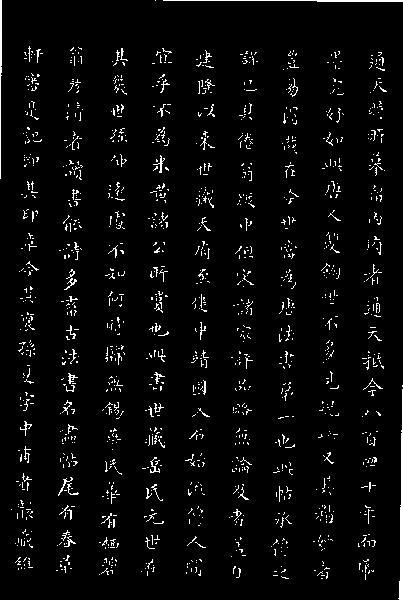 通天時所摹留內府者通天抵今八百四十年而帋
墨完好如此唐人雙鉤世不多見況此又其精妙者
豈易得哉在今世當為唐法書第一也此帖承傳之
詳已具倦翁跋中但宋諸家評品略無論及者蓋自
建隆以來世藏天府至建中靖國入石始流傳人間
宜乎不為米黃諸公所賞也此書世藏岳氏元世在
其幾世孫仲遠處不知何時歸無錫華氏華有栖碧
翁彥清者讀書能詩多蓄古法書名畫帖尾有春草
軒審定記即其印章今其裔孫夏字中甫者韜藏惟